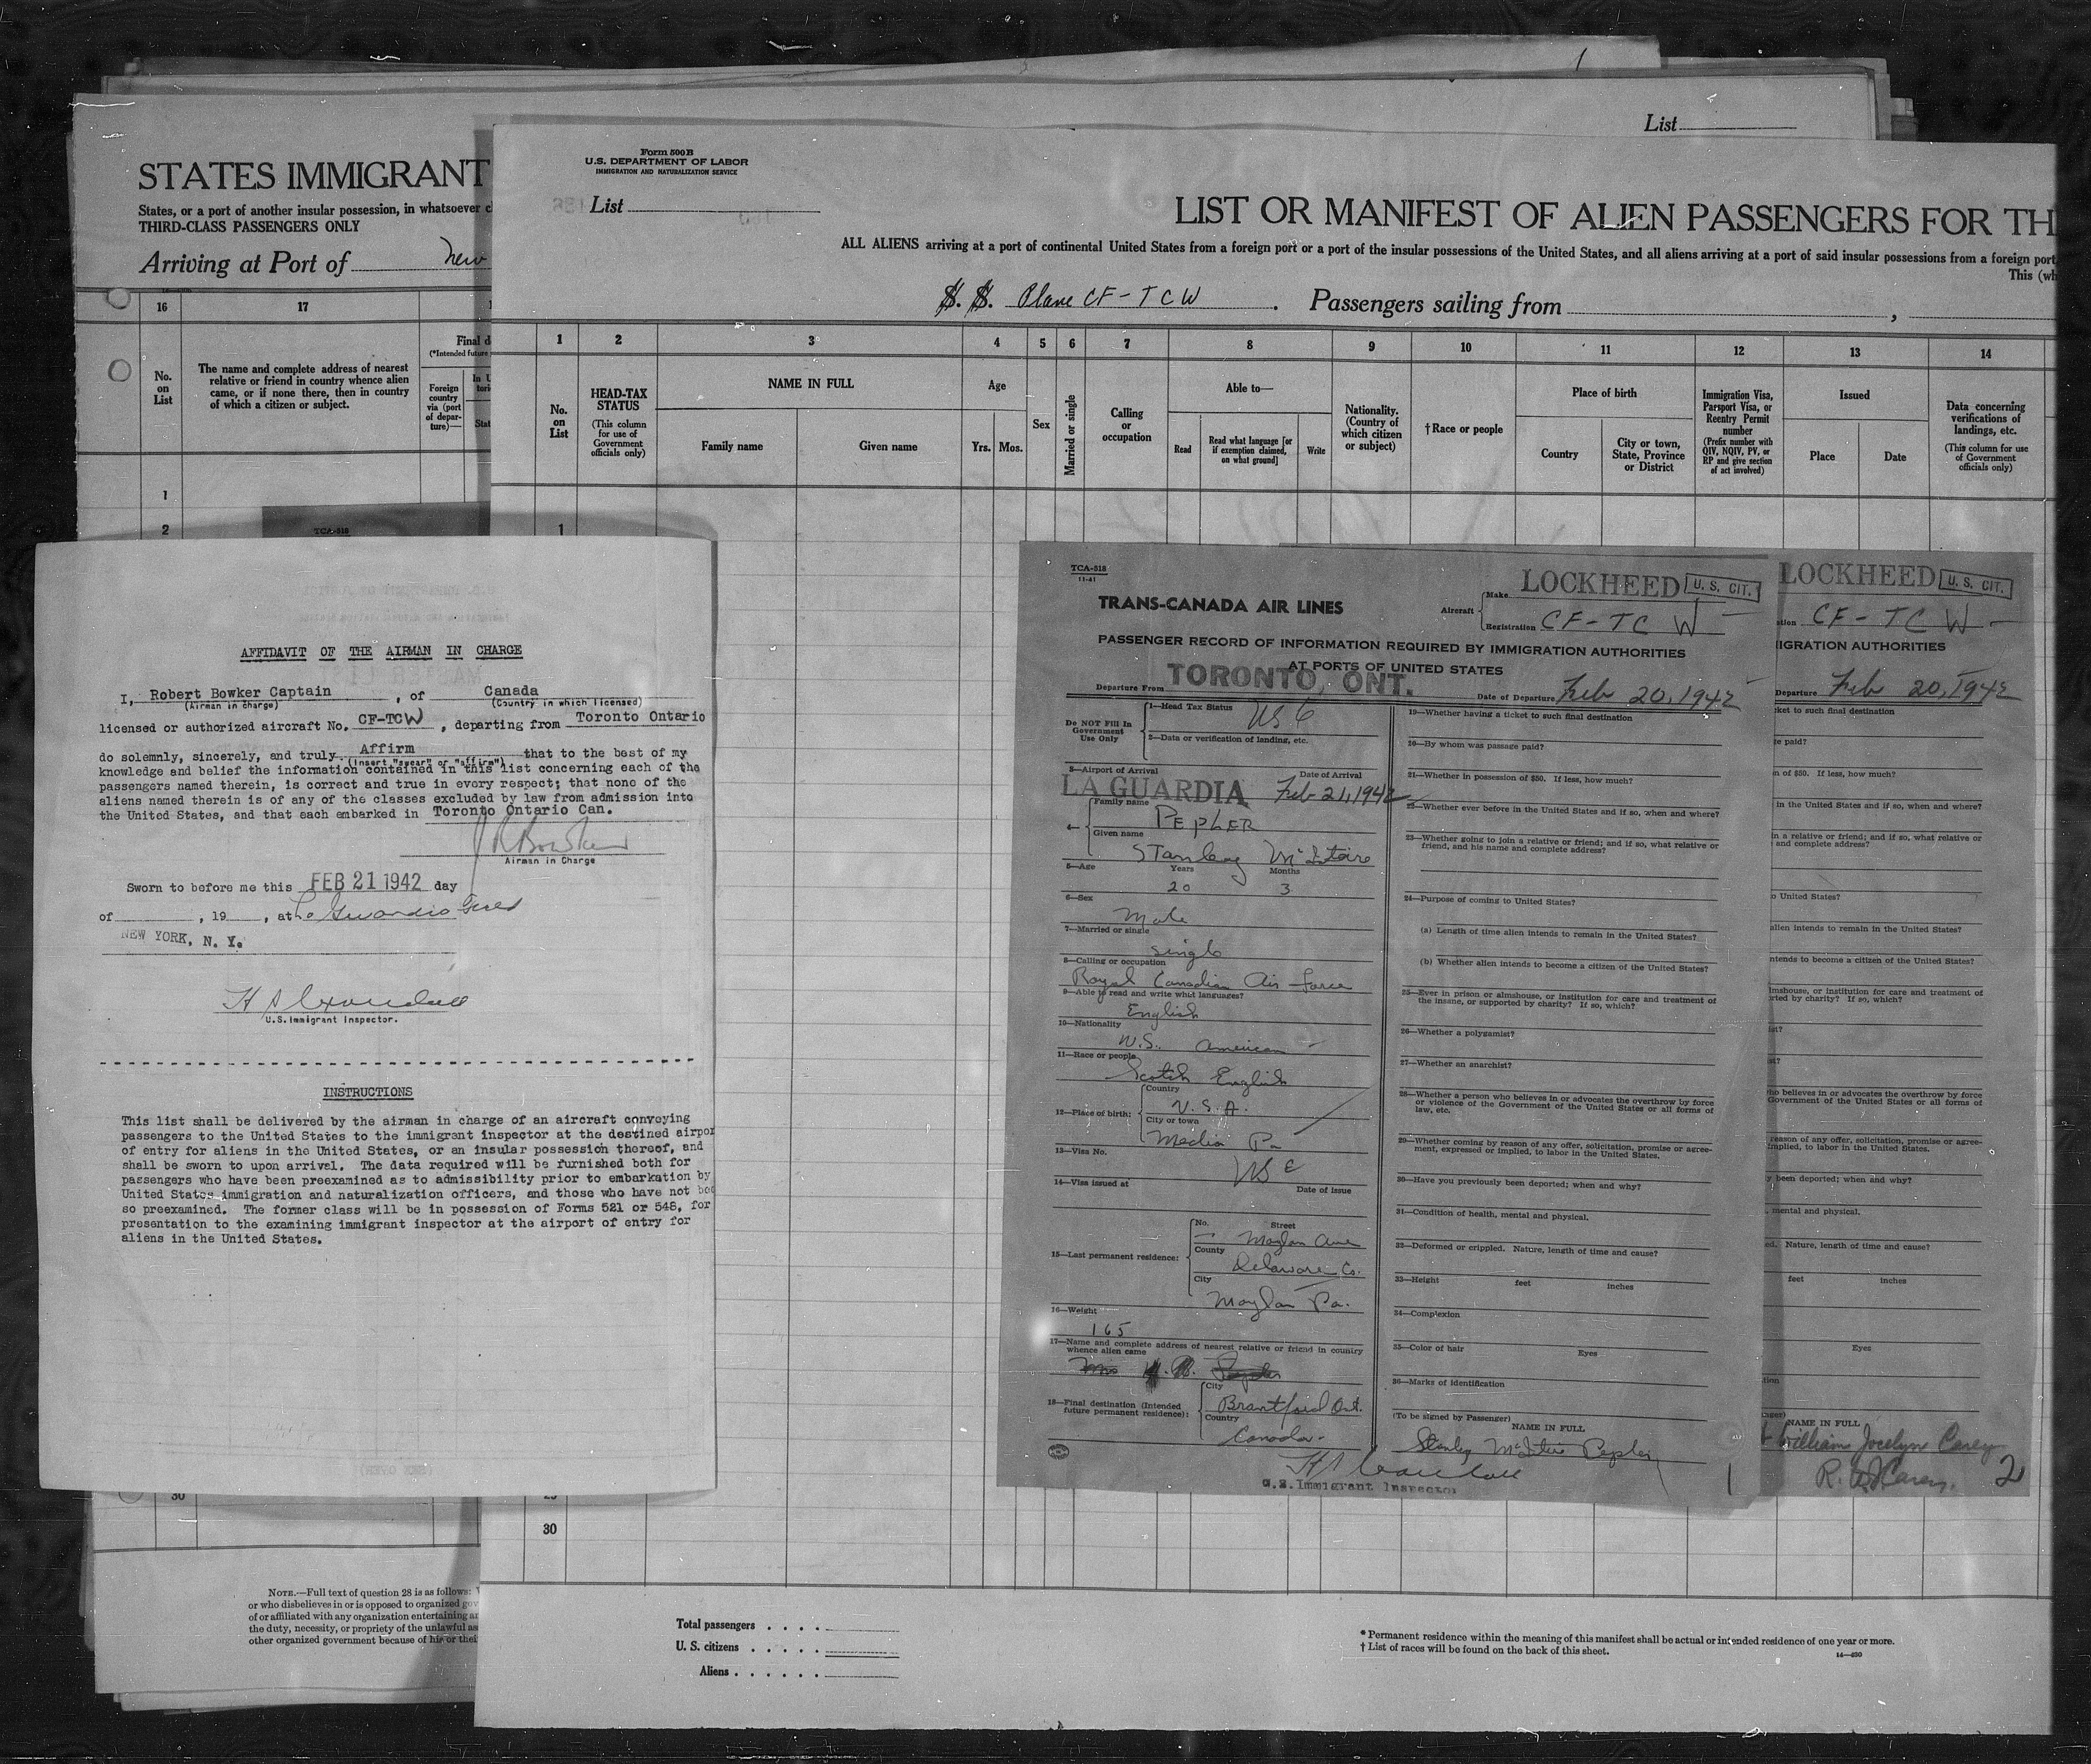 List
STATES IMMIGRANT
States, or a port of another insular possession, in whatsoever c
THIRD-CLASS PASSENGERS ONLY
Arriving at Port of New
16
17
No.
on
List
The name and complete address of nearest
relative or friend in country whence alien
came, or if none there, then in country
of which a citizen or subject.
Final d
(*Intended future
Foreign
country
via (port
of depar-
ture)—
In U
tori
Stat
1
2
30
NOTE.—Full text of question 28 is as follows:
or who disbelieves in or is opposed to organized gov
of or affiliated with any organization entertaining an
the duty, necessity, or propriety of the unlawful as
other organized government because of his or thei
Form 500 B
U.S. DEPARTMENT OF LABOR
IMMIGRATION AND NATURALIZATION SERVICE
List
LIST OR MANIFEST OF ALIEN PASSENGERS FOR TH
ALL ALIENS arriving at a port of continental United States from a foreign port or a port of the insular possessions of the United States, and all aliens arriving at a port of said insular possessions from a foreign port
This (wh
S. S. Plane CF-TCW . Passengers sailing from ,
1 2 3 4 5 6 7 8 9 10 11 12 13 14
No.
on
List
HEAD-TAX
STATUS
(This column
for use of
Government
officials only)
NAME IN FULL
Family name
Given name
Age
Yrs. Mos.
Sex
Married or single
Calling
or
occupation
Able to—
Read
Read what language [or
if exemption claimed,
on what ground]
Write
Nationality.
(Country of
which citizen
or subject)
†Race or people
Place of birth
Country
City or town,
State, Province
or District
Immigration Visa,
Passport Visa, or
Reentry Permit
number
(Prefix number with
QIV, NQIV, PV, or
RP and give section
of act involved)
Issued
Place
Date
Data concerning
verifications of
landings, etc.
(This column for use
of Government
officials only)
1
30
Total passengers . . . .
U. S. citizens . . . . .
Aliens . . . . . .
* Permanent residence within the meaning of this manifest shall be actual or intended residence of one year or more.
† List of races will be found on the back of this sheet.
TCA-518
AFFIDAVIT OF THE AIRMAN IN CHARGE
I, Robert Bowker Captain , of Canada
(Airman in charge) (Country in which licensed)
licensed or authorized aircraft No. CF-TCW , departing from Toronto Ontario
do solemnly, sincerely, and truly Affirm that to the best of my
(Insert "swear" or "affirm")
knowledge and belief the information contained in this list concerning each of the
passengers named therein, is correct and true in every respect; that none of the
aliens named therein is of any of the classes excluded by law from admission into
the United States, and that each embarked in Toronto Ontario Can.
Airman in Charge
Sworn to before me this FEB 21 1942 day
of , 19 , at La Guardia Field
NEW YORK, N. Y.
U.S. Immigrant Inspector.
INSTRUCTIONS
This list shall be delivered by the airman in charge of an aircraft conveying
passengers to the United States to the immigrant inspector at the destined airpor
of entry for aliens in the United States, or an insular possession thereof, and
shall be sworn to upon arrival. The data required will be furnished both for
passengers who have been preexamined as to admissibility prior to embarkation by
United States immigration and naturalization officers, and those who have not bee
so preexamined. The former class will be in possession of Forms 521 or 548, for
presentation to the examining immigrant inspector at the airport of entry for
aliens in the United States.
TCA-518
11-41
TRANS-CANADA AIR LINES
Aircraft
Make LOCKHEED U. S. CIT.
Registration CF-TC W
PASSENGER RECORD OF INFORMATION REQUIRED BY IMMIGRATION AUTHORITIES
AT PORTS OF UNITED STATES
Departure From TORONTO, ONT.
Date of Departure Feb 20, 1942
Do NOT Fill In
Government
Use Only
1—Head Tax Status USC
2—Data or verification of landing, etc.
3—Airport of Arrival Date of Arrival
LA GUARDIA Feb 21, 1942
4—
Family name PEPLER
Given name Stanley McIntire
5—Age Years Months
20 3
6—Sex
Male
7—Married or single
single
8—Calling or occupation
Royal Canadian Air Force
9—Able to read and write what languages?
English
10—Nationality
U.S. American
11—Race or people
Scotch English
12—Place of birth:
Country
U.S.A.
City or town
Media Pa
13—Visa No.
USC
14—Visa issued at Date of issue
15—Last permanent residence:
No. Street
Moylan Ave
County
Delaware Co.
City
Moylan Pa.
16—Weight
165
17—Name and complete address of nearest relative or friend in country
whence alien came
18—Final destination (Intended
future permanent residence):
City
Brantford Ont.
Country
Canada
U.S. Immigrant Inspector
19—Whether having a ticket to such final destination
20—By whom was passage paid?
21—Whether in possession of $50. If less, how much?
22—Whether ever before in the United States and if so, when and where?
23—Whether going to join a relative or friend; and if so, what relative or
friend, and his name and complete address?
24—Purpose of coming to United States?
(a) Length of time alien intends to remain in the United States?
(b) Whether alien intends to become a citizen of the United States?
25—Ever in prison or almshouse, or institution for care and treatment of
the insane, or supported by charity? If so, which?
26—Whether a polygamist?
27—Whether an anarchist?
28—Whether a person who believes in or advocates the overthrow by force
or violence of the Government of the United States or all forms of
law, etc.
29—Whether coming by reason of any offer, solicitation, promise or agree-
ment, expressed or implied, to labor in the United States.
30—Have you previously been deported; when and why?
31—Condition of health, mental and physical.
32—Deformed or crippled. Nature, length of time and cause?
33—Height feet inches
34—Complexion
35—Color of hair Eyes
36—Marks of identification
(To be signed by Passenger)
NAME IN FULL
Stanley McIntire Pepler
1
LOCKHEED U. S. CIT.
tion CF-TC W
IGRATION AUTHORITIES
Departure Feb 20, 1942
cket to such final destination
e paid?
n of $50. If less, how much?
in the United States and if so, when and where?
n a relative or friend; and if so, what relative or
and complete address?
o United States?
alien intends to remain in the United States?
ntends to become a citizen of the United States?
lmshouse, or institution for care and treatment of
rted by charity? If so, which?
ist?
st?
ho believes in or advocates the overthrow by force
Government of the United States or all forms of
reason of any offer, solicitation, promise or agree-
implied, to labor in the United States.
y been deported; when and why?
, mental and physical.
ed. Nature, length of time and cause?
feet inches
Eyes
tion
NAME IN FULL
William Jocelyn Carey
2